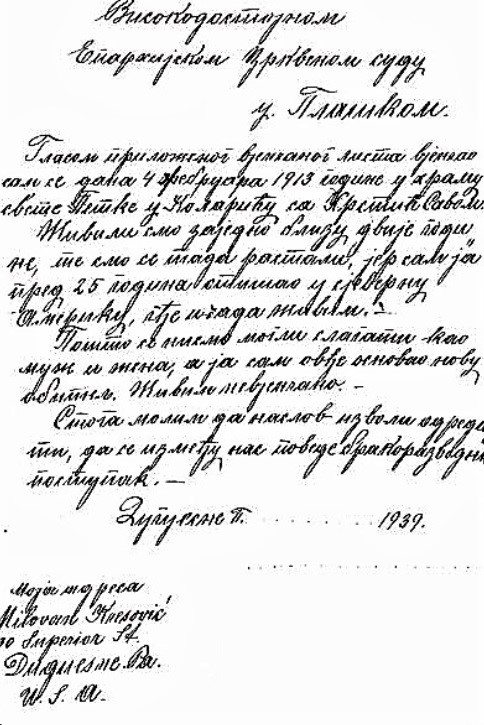 Високодостојном
Епархијском Црквеном суду
у Плашком.
Гласом приложеног вјенчаног листа вјенчао
сам се дана 4 фебруара 1913 године у храму
свете Петке у Коларићу са Крстић Савом.
Живили смо заједно близу двије годи
не, те смо се тада растали, јер сам ја
пред 25 година отишао у сјеверну
Америку, гдје и сада живим. –
Пошто се нисмо могли слагати као
муж и жена, а ја сам овдје основао нову
обитељ. Живим невјенчано. –
Стога молим да наслов изволи одреди
ти, да се између нас поведе бракоразводни
поступак. –
Дугесне П. . . . . . . . . . . 1939.
Моја адреса
Milovan Kresović
Superior St.
Duquesne Pa.
U. S. A.